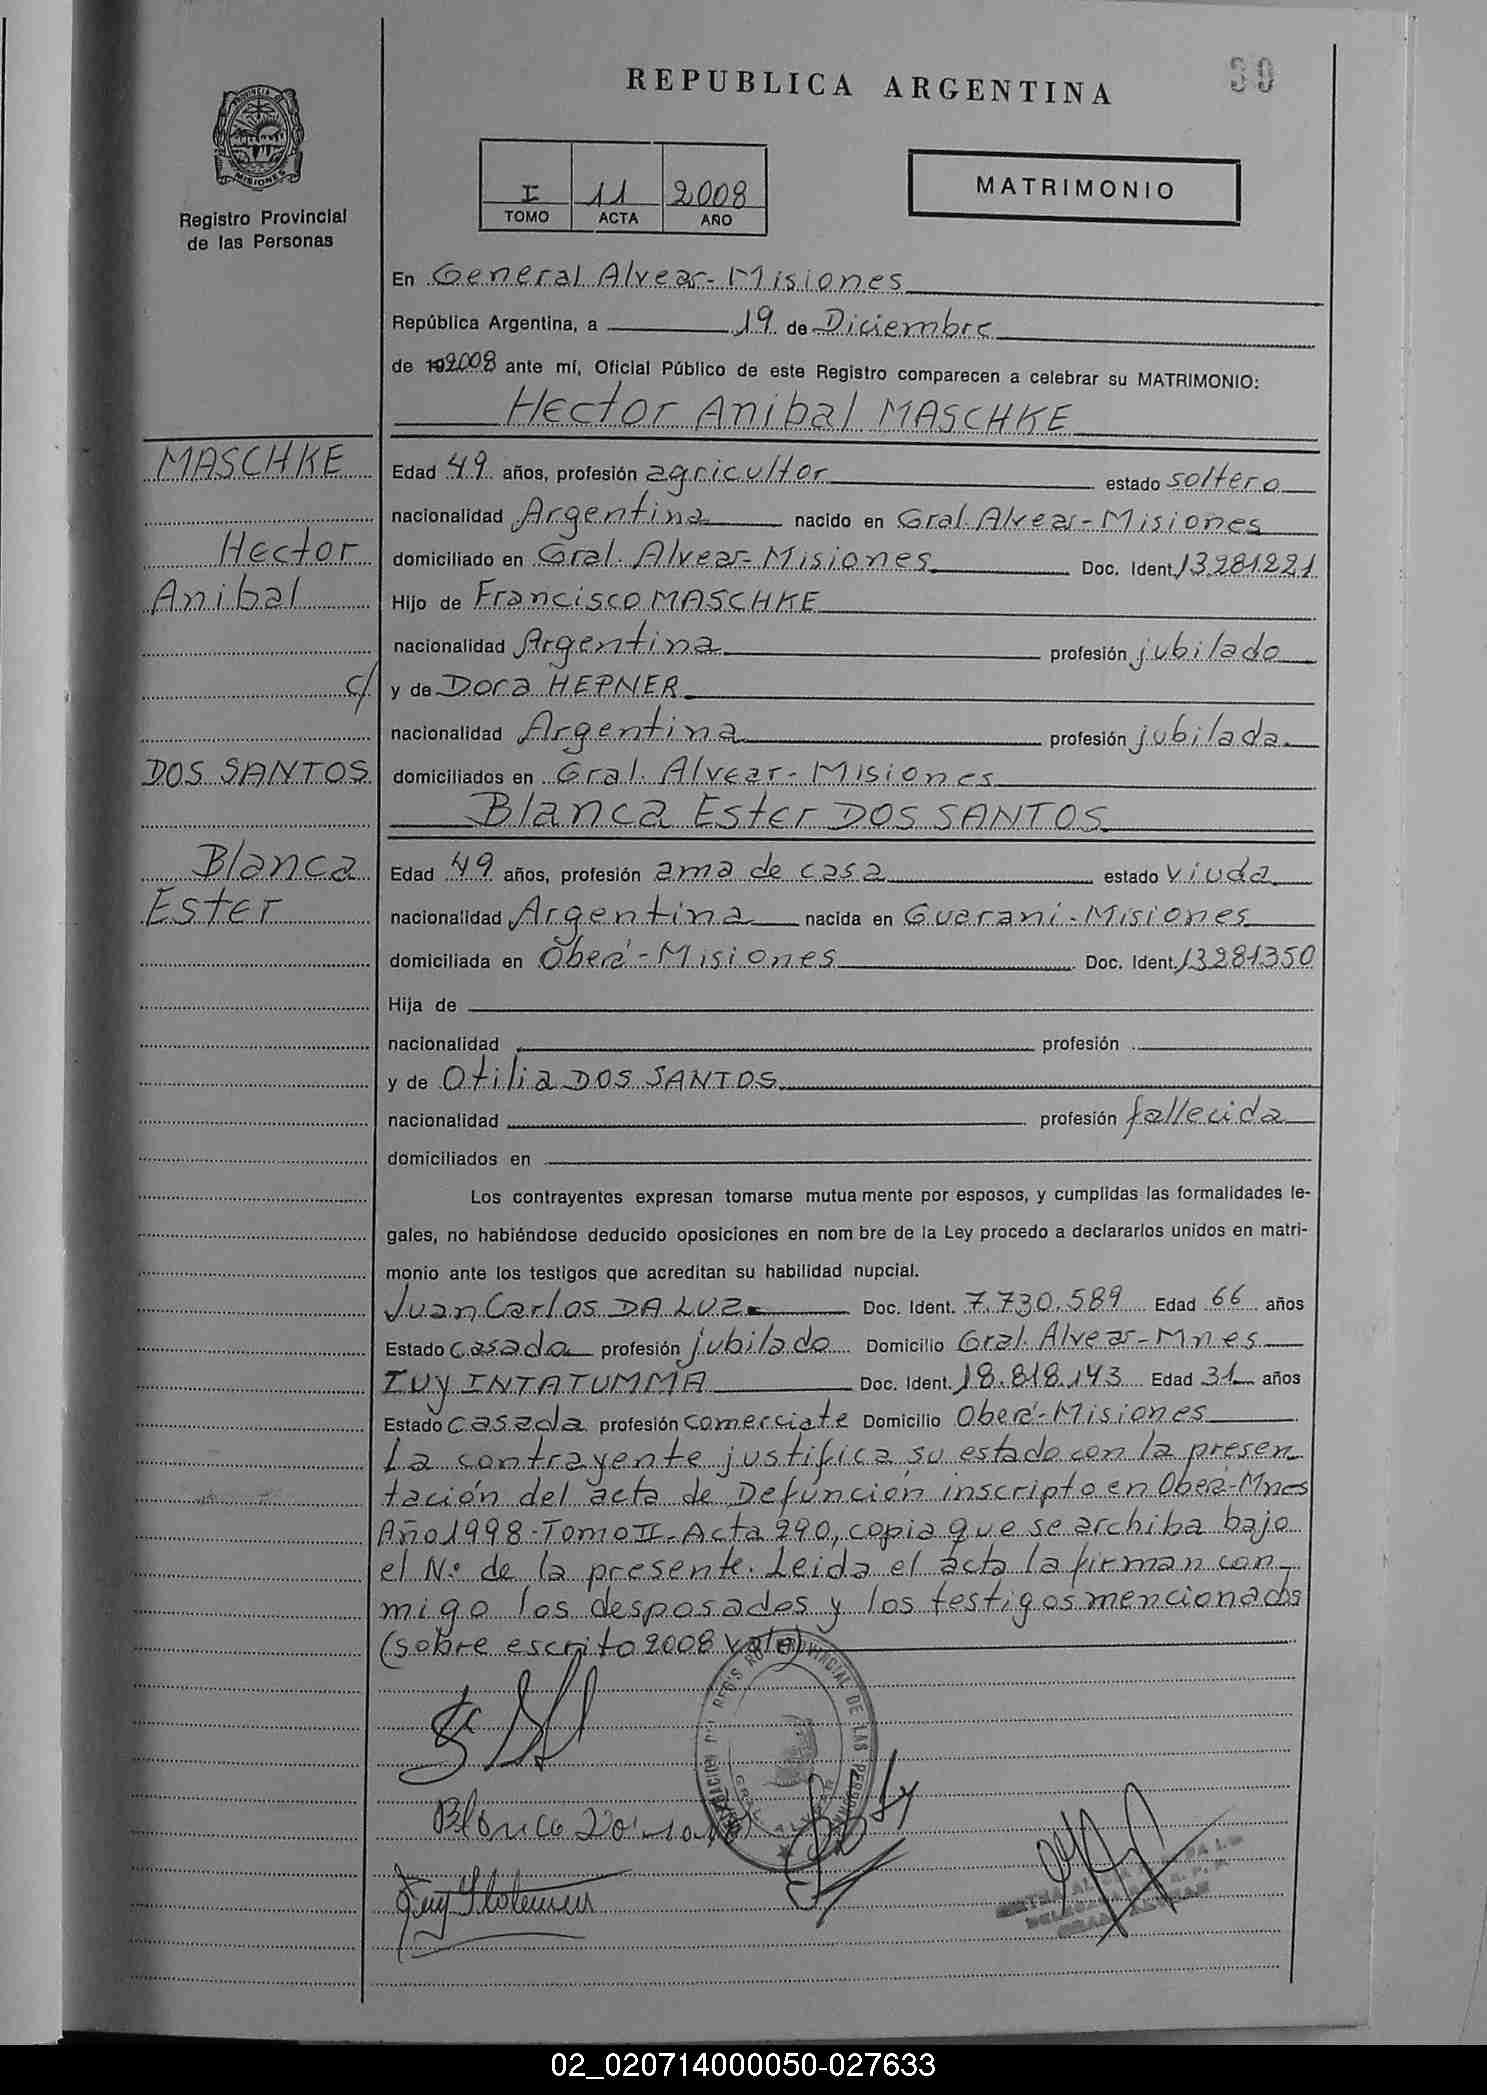 REPUBLICA ARGENTINA
39
PROVINCIA DE
MISIONES
Registro Provincial
de las Personas
I 11 2008
TOMO ACTA AÑO
MATRIMONIO
En General Alvear-Misiones
República Argentina, a 19 de Diciembre
de 2008 ante mí, Oficial Público de este Registro comparecen a celebrar su MATRIMONIO:
Hector Anibal MASCHKE
MASCHKE
Hector
Anibal
c/
DOS SANTOS
Blanca
Ester
Edad 49 años, profesión agricultor estado soltero
nacionalidad Argentina nacido en Gral Alvear-Misiones
domiciliado en Gral. Alvear-Misiones Doc. Ident. 13281221
Hijo de Francisco MASCHKE
nacionalidad Argentina profesión jubilado
y de Dora HEPNER
nacionalidad Argentina profesión jubilada
domiciliados en Gral. Alvear-Misiones
Blanca Ester DOS SANTOS
Edad 49 años, profesión ama de casa estado viuda
nacionalidad Argentina nacida en Guarani-Misiones
domiciliada en Oberá-Misiones Doc. Ident. 13281350
Hija de
nacionalidad profesión
y de Otilia DOS SANTOS
nacionalidad profesión fallecida
domiciliados en
Los contrayentes expresan tomarse mutua mente por esposos, y cumplidas las formalidades le-
gales, no habiéndose deducido oposiciones en nom bre de la Ley procedo a declararlos unidos en matri-
monio ante los testigos que acreditan su habilidad nupcial.
Juan Carlos DA LUZ Doc. Ident. 7.730.589 Edad 66 años
Estado casado profesión jubilado Domicilio Gral. Alvear-Mnes
IUY INTATUMMA Doc. Ident. 18.818.143 Edad 31 años
Estado casada profesión comerciate Domicilio Oberá-Misiones
La contrayente justifica su estado con la presen
tación del acta de Defunción inscripto en Oberá-Mnes
Año 1998-Tomo II-Acta 290, copia que se archiba bajo
el N° de la presente. Leida el acta la firman con-
migo los desposados y los testigos mencionados
(sobre escrito 2008 vale)
DE LAS
ALVEAR
02_020714000050-027633